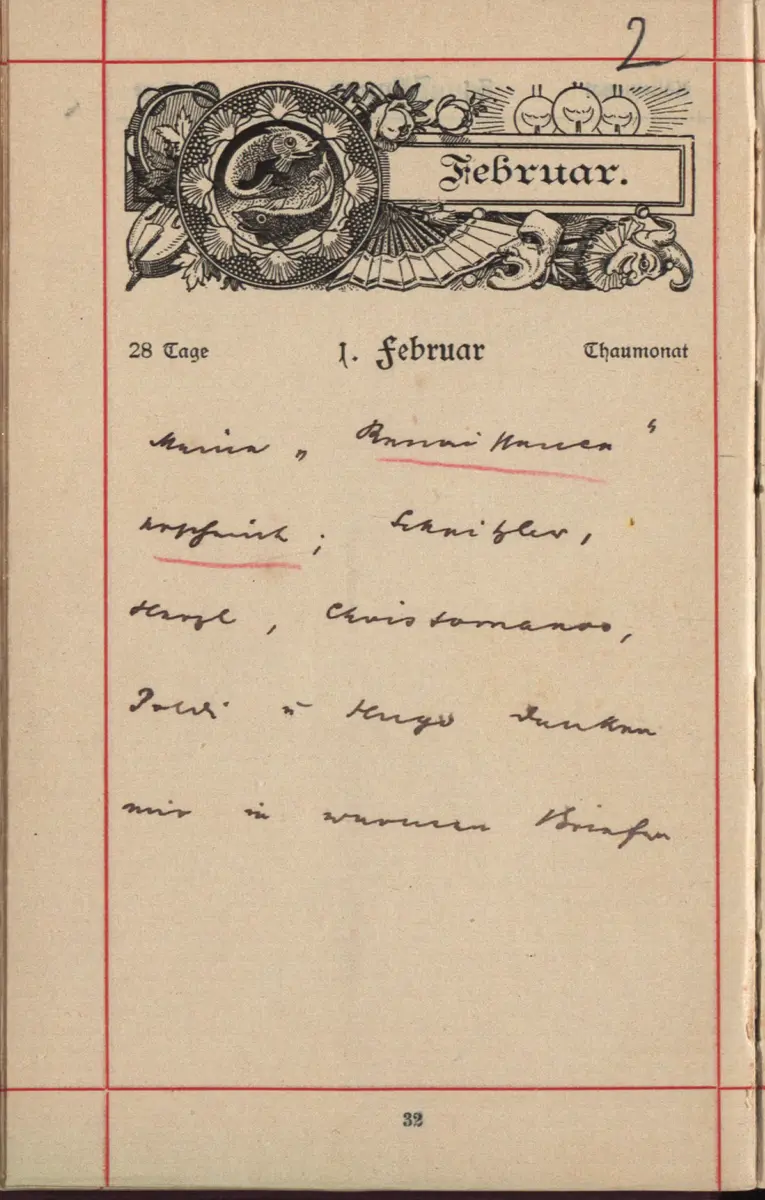 2
Februar.
28 Tage 1. Februar Thaumonat
Meine „Renaissance“
erscheint; Schnitzler,
Herzl, Christomanos,
Poldi u Hugo danken
mir in warmen Briefen
32